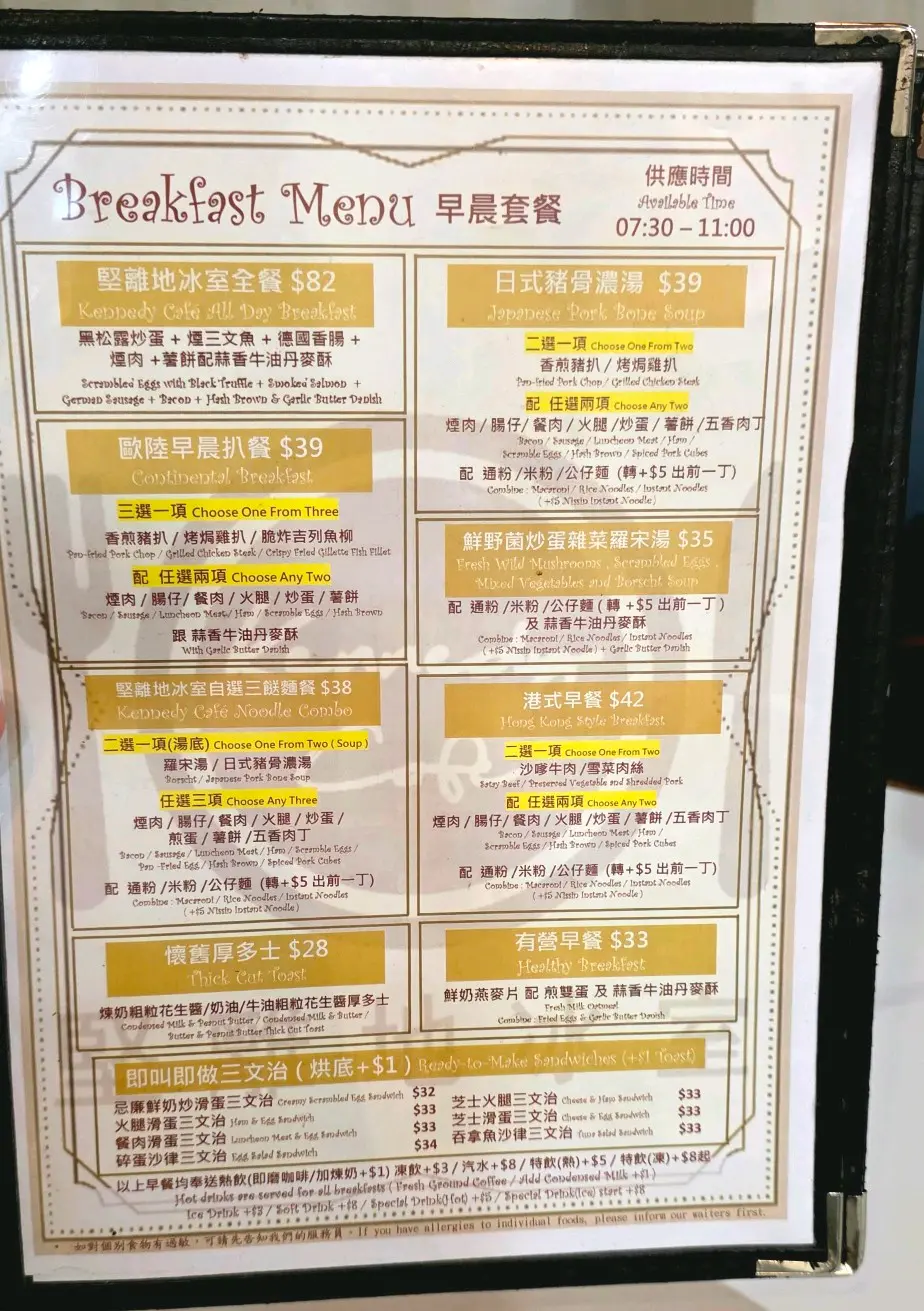 Breakfast Menu 早晨套餐
供應時間
Available Time
07:30 – 11:00
堅離地冰室全餐 $82
Kennedy Café All Day Breakfast
黑松露炒蛋 + 煙三文魚 + 德國香腸 +
煙肉 +薯餅配蒜香牛油丹麥酥
Scrambled Eggs with Black Truffle + Smoked Salmon +
German Sausage + Bacon + Hash Brown & Garlic Butter Danish
歐陸早晨扒餐 $39
Continental Breakfast
三選一項 Choose One From Three
香煎豬扒 / 烤焗雞扒 / 脆炸吉列魚柳
Pan-fried Pork Chop / Grilled Chicken Steak / Crispy Fried Gillette Fish Fillet
配 任選兩項 Choose Any Two
煙肉 / 腸仔/ 餐肉 / 火腿 / 炒蛋 / 薯餅
Bacon / Sausage / Luncheon Meat/ Ham / Scramble Eggs / Hash Brown
跟 蒜香牛油丹麥酥
With Garlic Butter Danish
堅離地冰室自選三餸麵餐 $38
Kennedy Café Noodle Combo
二選一項(湯底) Choose One From Two ( Soup )
羅宋湯 / 日式豬骨濃湯
Borscht / Japanese Pork Bone Soup
任選三項 Choose Any Three
煙肉 / 腸仔/ 餐肉 / 火腿 / 炒蛋 /
煎蛋 / 薯餅 /五香肉丁
Bacon / Sausage / Luncheon Meat / Ham / Scramble Eggs /
Pan -Fried Egg / Hash Brown / Spiced Pork Cubes
配 通粉 /米粉 /公仔麵 (轉+$5 出前一丁)
Combine : Macaroni / Rice Noodles / Instant Noodles
( +$5 Nissin Instant Noodle )
懷舊厚多士 $28
Thick Cut Toast
煉奶粗粒花生醬/奶油/牛油粗粒花生醬厚多士
Condensed Milk & Peanut Butter / Condensed Milk & Butter /
Butter & Peanut Butter Thick Cut Toast
日式豬骨濃湯 $39
Japanese Pork Bone Soup
二選一項 Choose One From Two
香煎豬扒 / 烤焗雞扒
Pan-fried Pork Chop / Grilled Chicken Steak
配 任選兩項 Choose Any Two
煙肉 / 腸仔/ 餐肉 / 火腿 /炒蛋 / 薯餅 /五香肉丁
Bacon / Sausage / Luncheon Meat / Ham /
Scramble Eggs / Hash Brown / Spiced Pork Cubes
配 通粉 /米粉 /公仔麵 (轉+$5 出前一丁)
Combine : Macaroni / Rice Noodles / Instant Noodles
( +$5 Nissin Instant Noodle )
鮮野菌炒蛋雜菜羅宋湯 $35
Fresh Wild Mushrooms , Scrambled Eggs ,
Mixed Vegetables and Borscht Soup
配 通粉 /米粉 /公仔麵 ( 轉 +$5 出前一丁 )
及 蒜香牛油丹麥酥
Combine : Macaroni / Rice Noodles / Instant Noodles
( +$5 Nissin Instant Noodle ) + Garlic Butter Danish
港式早餐 $42
Hong Kong Style Breakfast
二選一項 Choose One From Two
沙嗲牛肉 /雪菜肉絲
Satay Beef / Preserved Vegetable and Shredded Pork
配 任選兩項 Choose Any Two
煙肉 / 腸仔/ 餐肉 / 火腿 /炒蛋 / 薯餅 /五香肉丁
Bacon / Sausage / Luncheon Meat / Ham /
Scramble Eggs / Hash Brown / Spiced Pork Cubes
配 通粉 /米粉 /公仔麵 (轉+$5 出前一丁)
Combine : Macaroni / Rice Noodles / Instant Noodles
( +$5 Nissin Instant Noodle )
有營早餐 $33
Healthy Breakfast
鮮奶燕麥片 配 煎雙蛋 及 蒜香牛油丹麥酥
Fresh Milk Oatmeal
Combine : Fried Eggs & Garlic Butter Danish
即叫即做三文治 ( 烘底+$1 ) Ready-to-Make Sandwiches (+$1 Toast)
忌廉鮮奶炒滑蛋三文治 Creamy Scrambled Egg Sandwich $32
火腿滑蛋三文治 Ham & Egg Sandwich $33
餐肉滑蛋三文治 Luncheon Meat & Egg Sandwich $33
碎蛋沙律三文治 Egg Salad Sandwich $34
芝士火腿三文治 Cheese & Ham Sandwich $33
芝士滑蛋三文治 Cheese & Egg Sandwich $33
吞拿魚沙律三文治 Tuna Salad Sandwich $33
以上早餐均奉送熱飲(即磨咖啡/加煉奶+$1) 凍飲+$3 / 汽水+$8 / 特飲(熱)+$5 / 特飲(凍)+$8起
Hot drinks are served for all breakfasts ( Fresh Ground Coffee / Add Condensed Milk +$1 )
Ice Drink +$3 / Soft Drink +$8 / Special Drink(Hot) +$5 / Special Drink(Ice) start +$8
如對個別食物有過敏，可請先告知我們的服務員。If you have allergies to individual foods, please inform our waiters first.